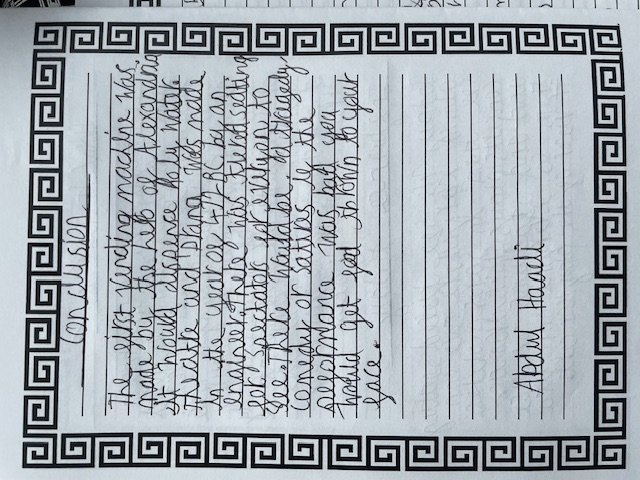 Conclusion
The first vending machine was
made by the hero of Alexandria
it would dispence holy water
Theatre and Drama was made
in the year of 472-BC by an
engineer. There was tiered seating
for spectator for everyone to
see. There would be, a tragedy
comedy or satires, if the
performance was bad you
would get food thrown to your
face.
Abdul Hawdi